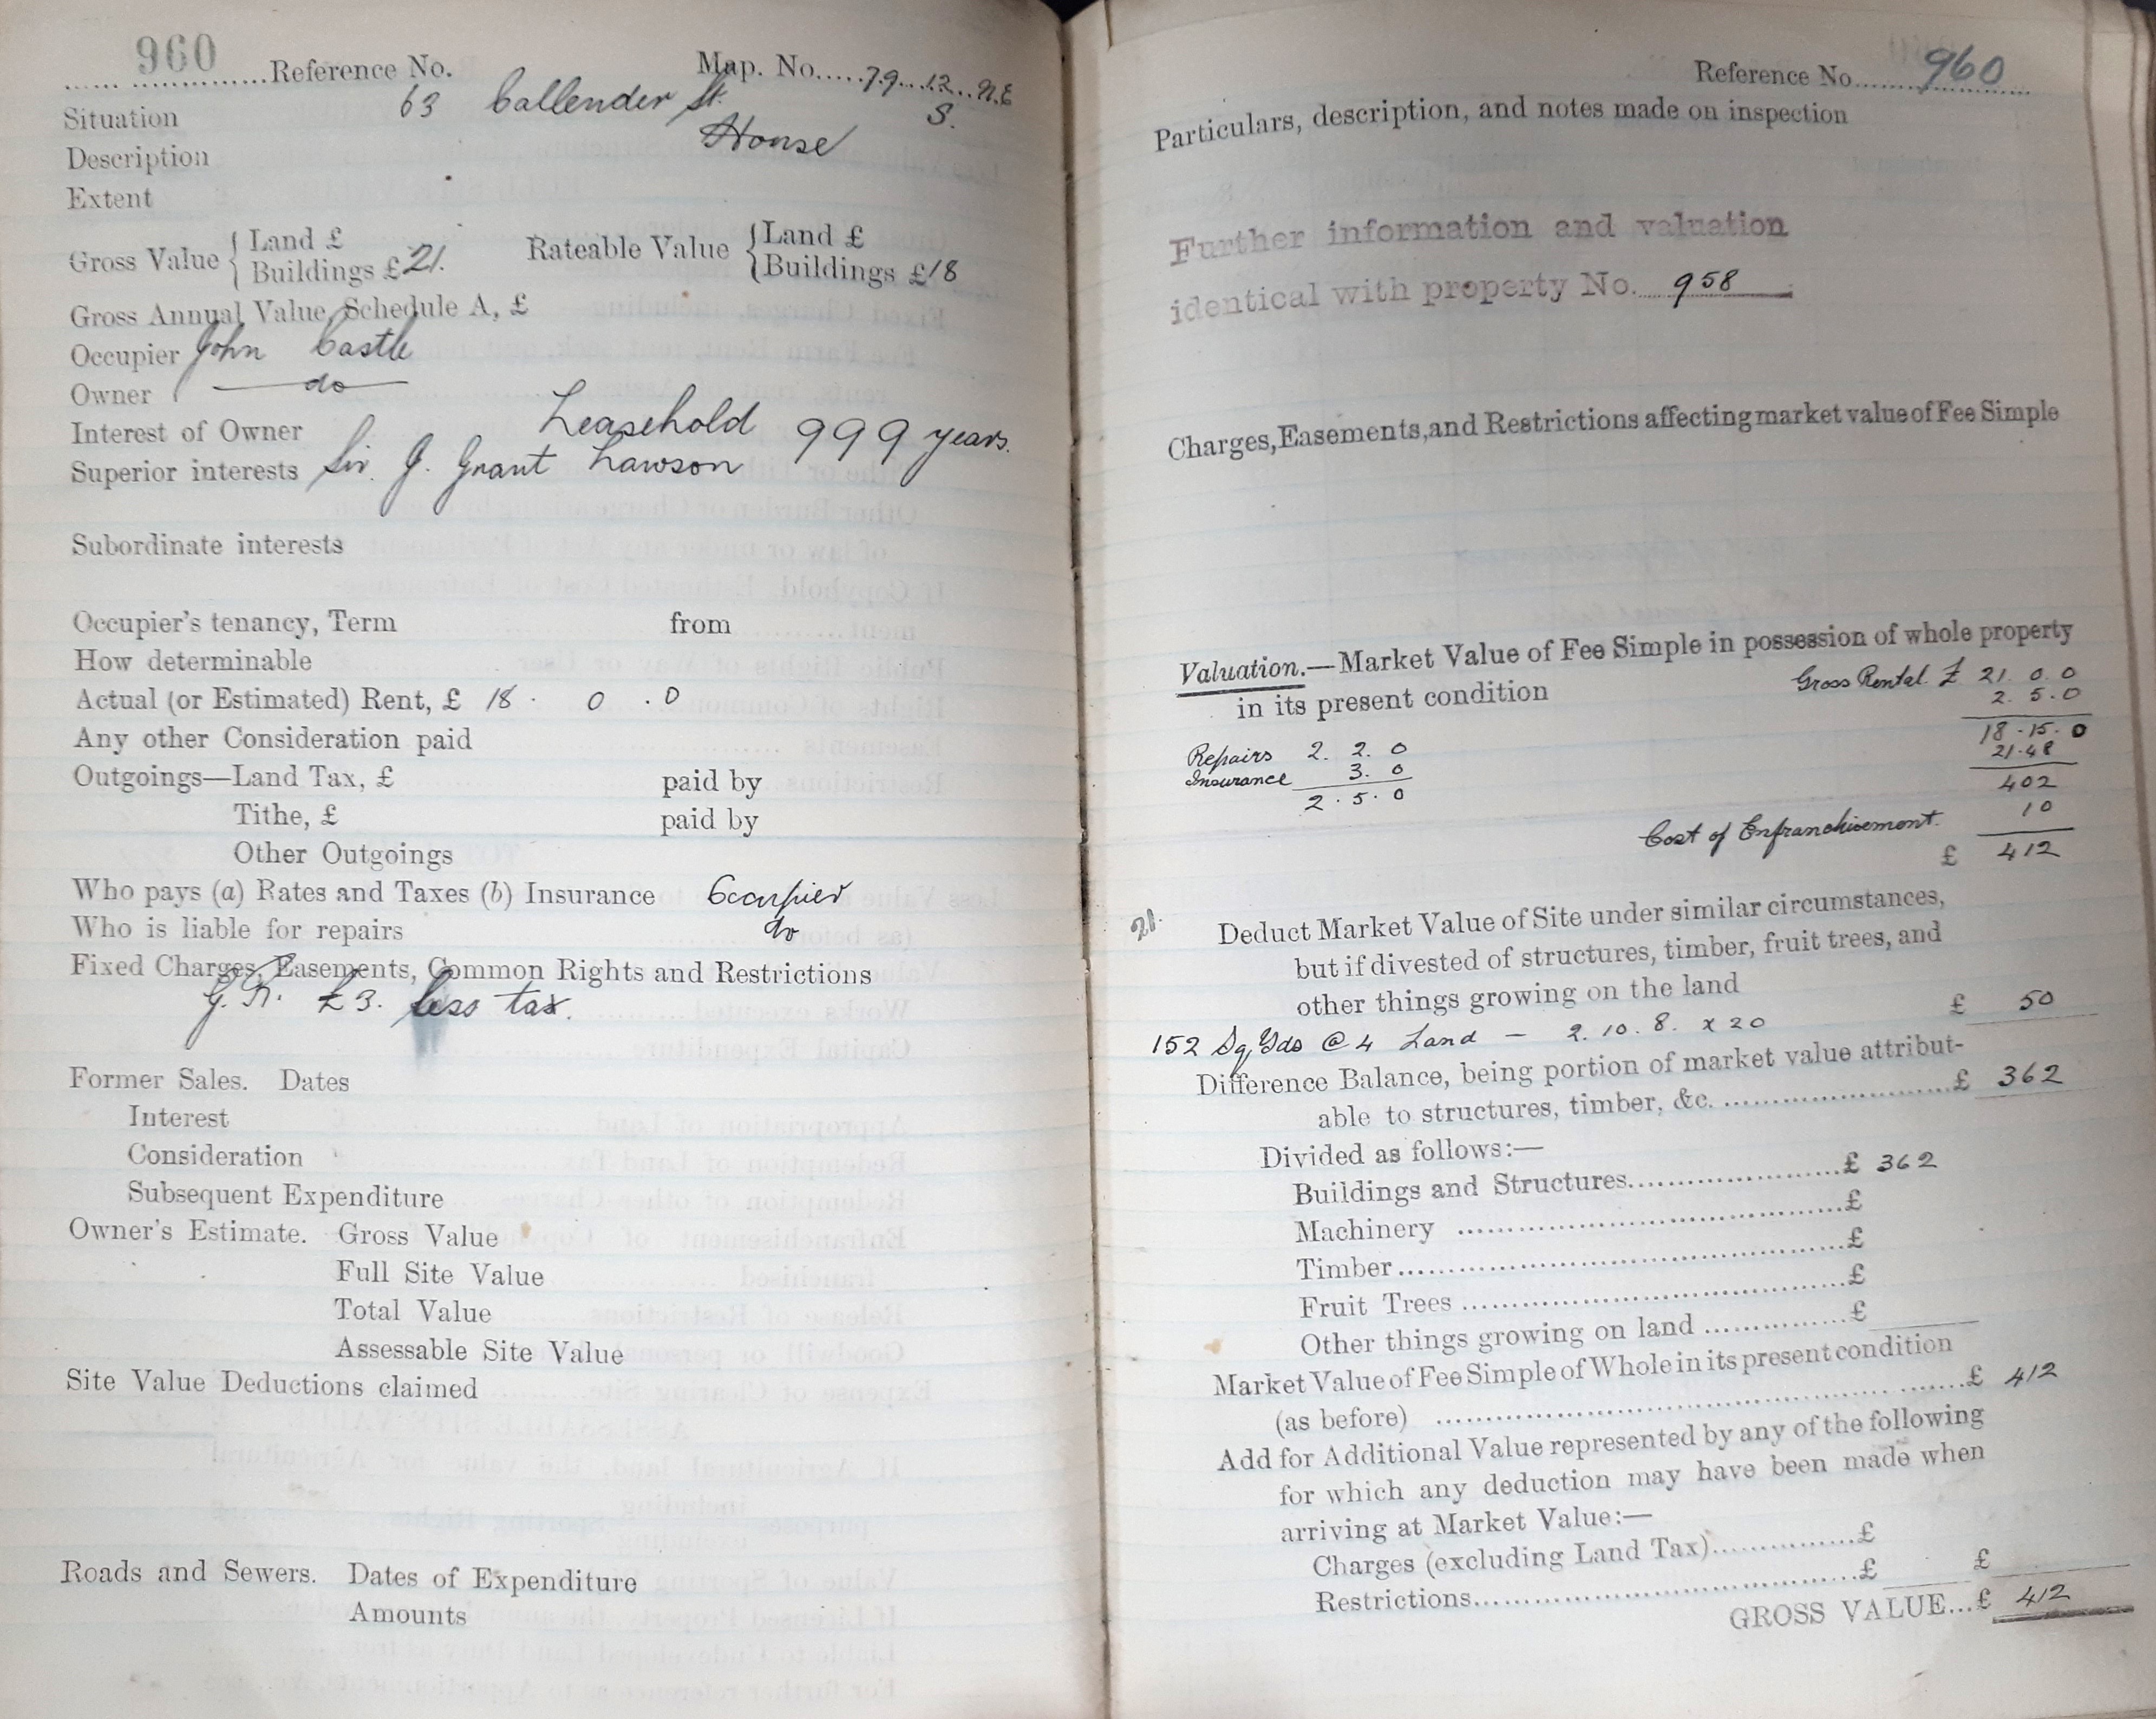 960
Reference No.
Map. No. 79. 12. N.E
S.
Situation 63 Callender St.
Description House
Extent
Gross Value { Land £
Buildings £21.
Rateable Value { Land £
Buildings £18
Gross Annual Value, Schedule A, £
Occupier John Castle
Owner do
Interest of Owner Leasehold 999 years.
Superior interests Sir. J. Grant Lawson
Subordinate interests
Occupier's tenancy, Term from
How determinable
Actual (or Estimated) Rent, £ 18 . 0 . 0
Any other Consideration paid
Outgoings—Land Tax, £ paid by
Tithe, £ paid by
Other Outgoings
Who pays (a) Rates and Taxes (b) Insurance Occupier
Who is liable for repairs do
Fixed Charges, Easements, Common Rights and Restrictions
G.R. £3. less tax.
Former Sales. Dates
Interest
Consideration
Subsequent Expenditure
Owner's Estimate. Gross Value
Full Site Value
Total Value
Assessable Site Value
Site Value Deductions claimed
Roads and Sewers. Dates of Expenditure
Amounts
Reference No. 960
Particulars, description, and notes made on inspection
Further information and valuation
identical with property No. 958
Charges, Easements, and Restrictions affecting market value of Fee Simple
Valuation.—Market Value of Fee Simple in possession of whole property
in its present condition
Gross Rental £ 21. 0. 0
2. 5. 0
18 . 15 . 0
21.48
402
Repairs 2. 2. 0
Insurance 3. 0
2 . 5 . 0
10
Cost of Enfranchisement.
£ 412
21.
Deduct Market Value of Site under similar circumstances,
but if divested of structures, timber, fruit trees, and
other things growing on the land £ 50
152 Sq. Yds @ 4 Land — 2. 10. 8. x 20
Difference Balance, being portion of market value attribut-
able to structures, timber, &c. £ 362
Divided as follows:—
Buildings and Structures £ 362
Machinery £
Timber £
Fruit Trees £
Other things growing on land £
Market Value of Fee Simple of Whole in its present condition
(as before) £ 412
Add for Additional Value represented by any of the following
for which any deduction may have been made when
arriving at Market Value:—
Charges (excluding Land Tax) £
Restrictions £ £
GROSS VALUE...£ 412